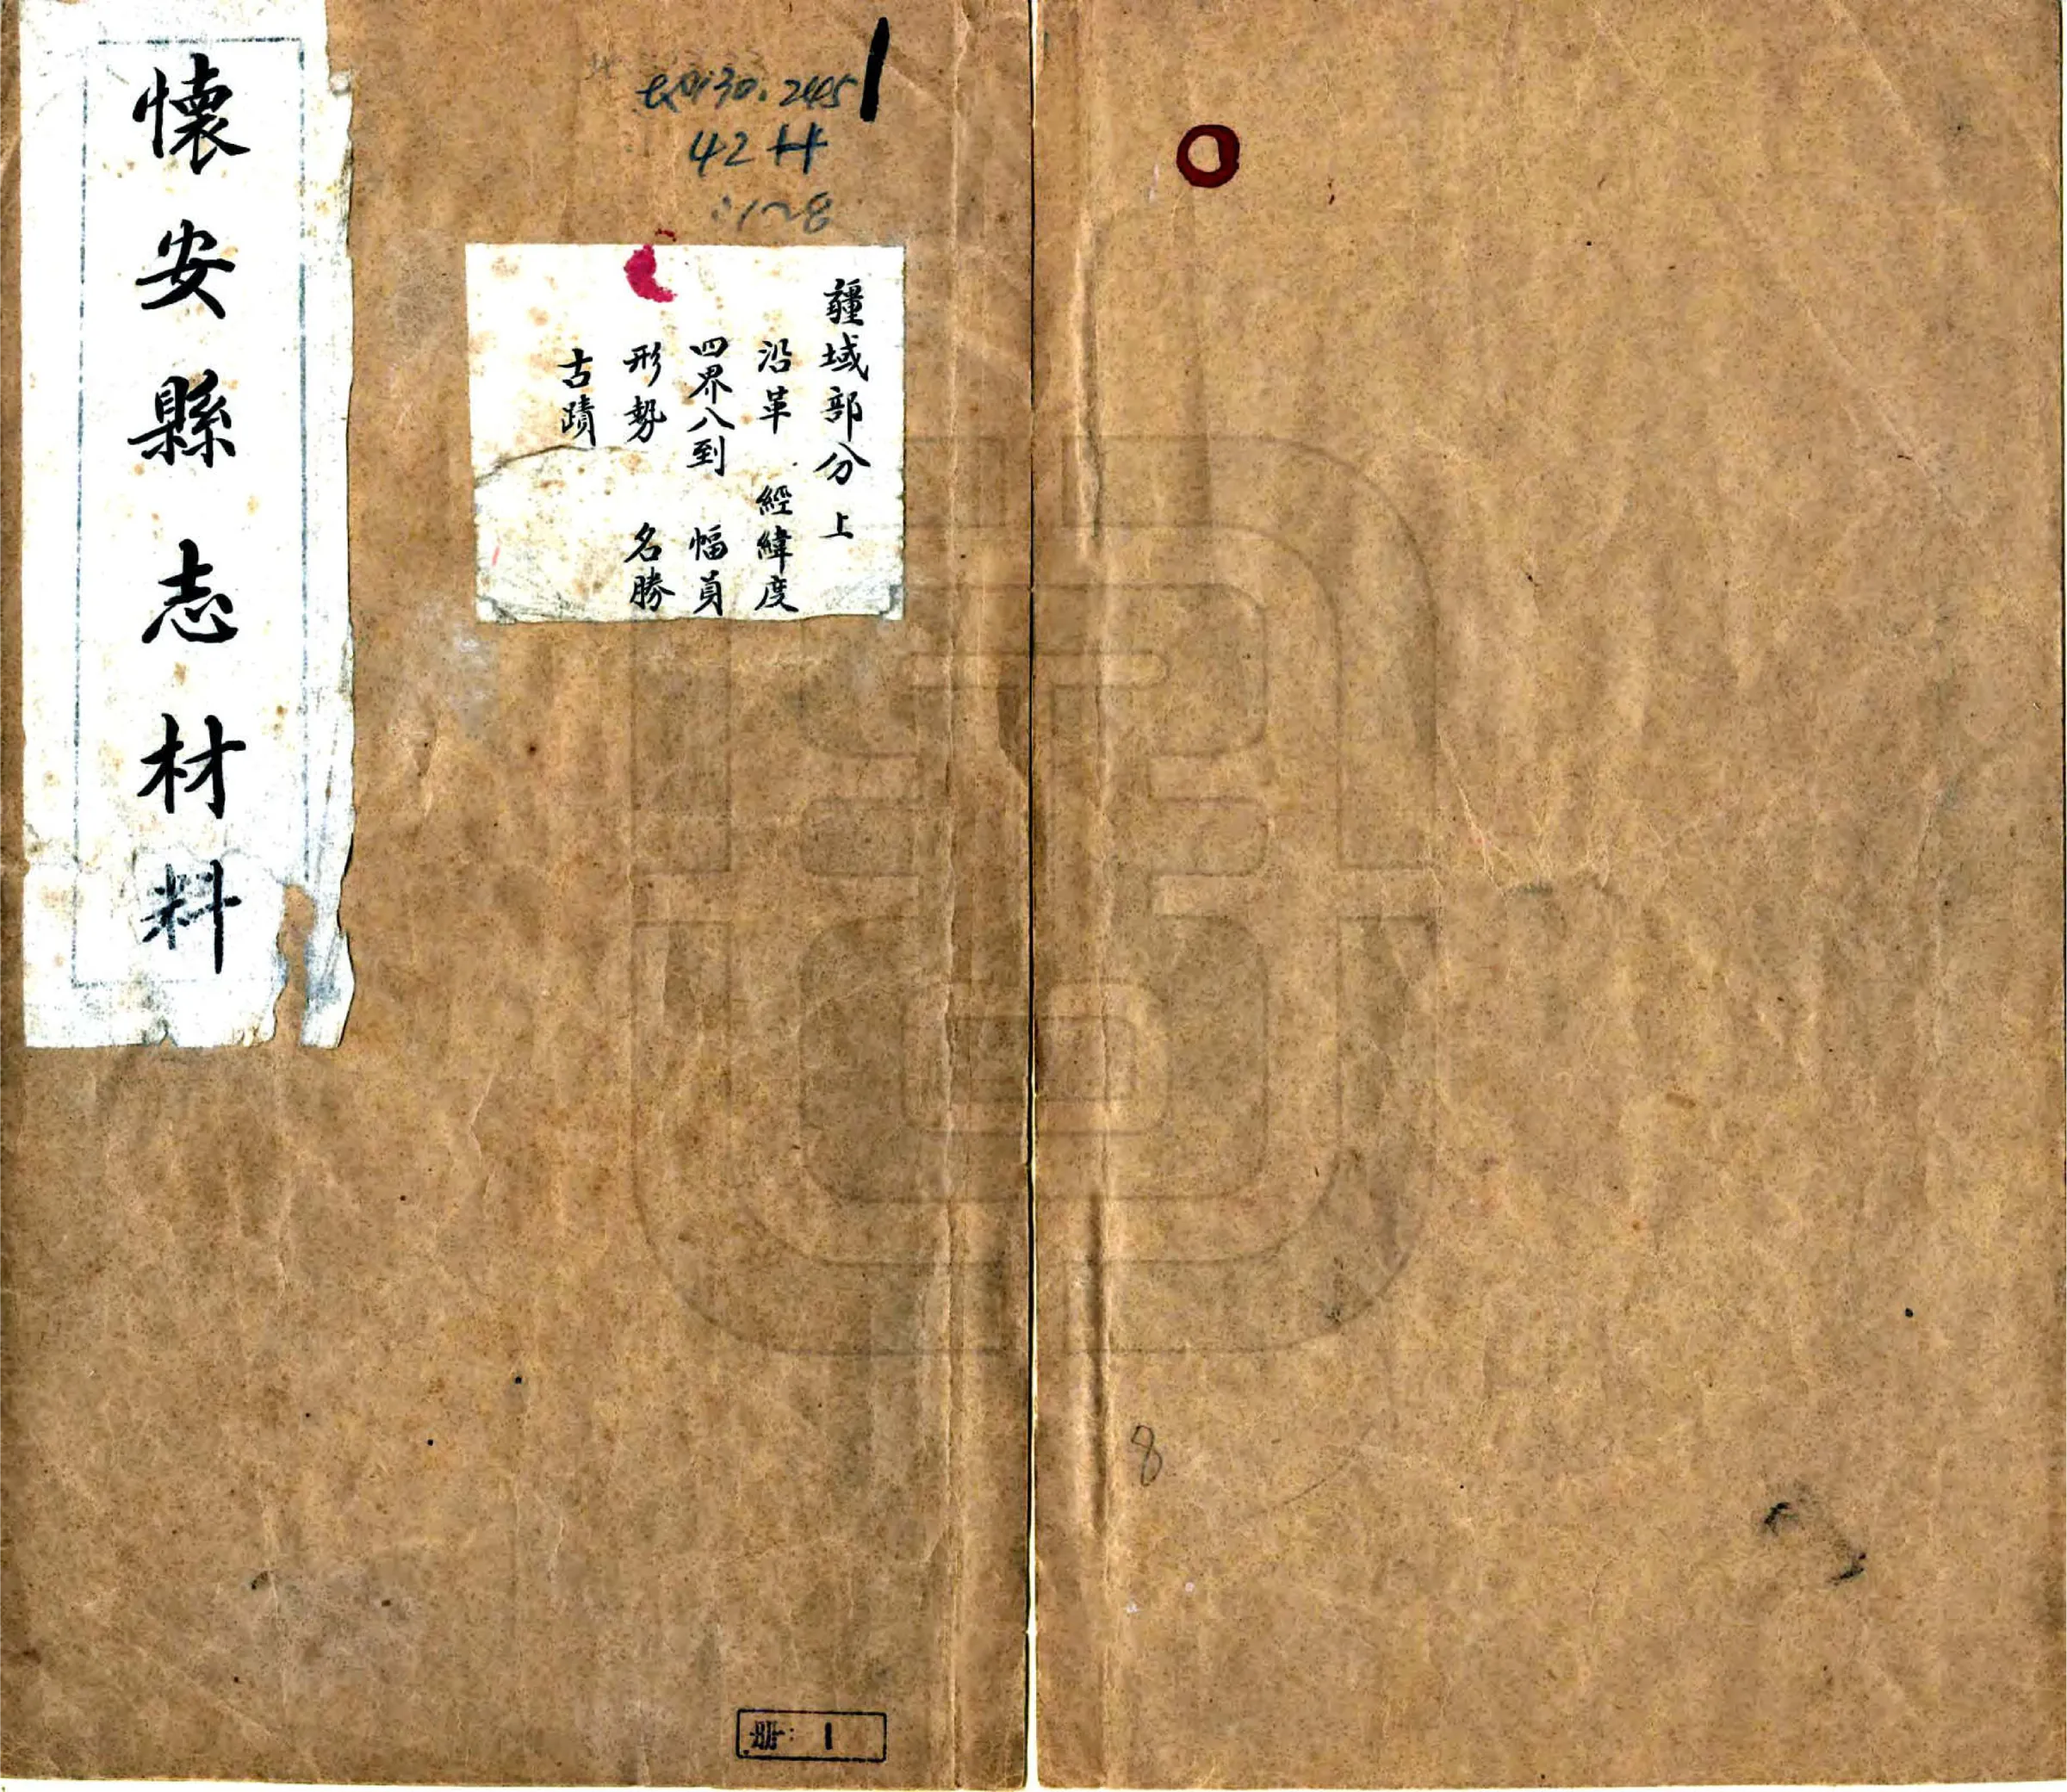 懷安縣志材料
1
130.2445
4244
:1~8
疆域部分 上
沿革 經緯度
四界八到 幅員
形勢 名勝
古蹟
册: 1
8